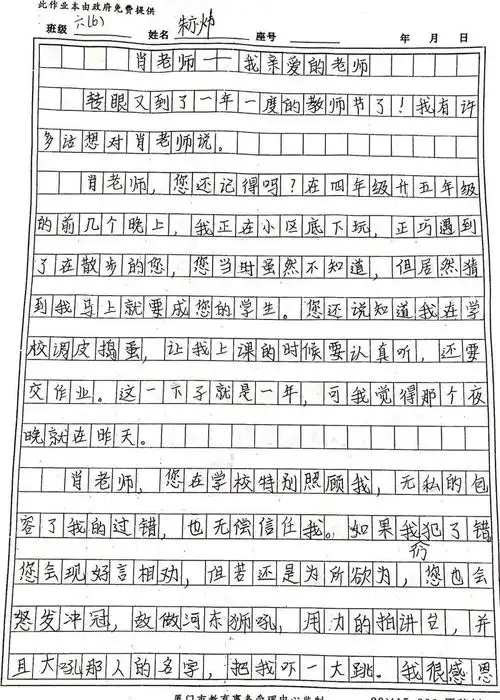 此作业本由政府免费提供
班级 六(6) 姓名 座号 年 月 日
肖老师——我亲爱的老师
转眼又到了一年一度的教师节了！我有许
多话想对肖老师说。
肖老师，您还记得吗？在四年级升五年级
的前几个晚上，我正在小区底下玩，正巧遇到
了在散步的您，您当时虽然不知道，但居然猜
到我马上就要成您的学生。您还说知道我在学
校调皮捣蛋，让我上课的时候要认真听，还要
交作业。这一下子就是一年，可我觉得那个夜
晚就在昨天。
肖老师，您在学校特别照顾我，无私的包
容了我的过错，也无偿信任我。如果我们犯了错
您会现好言相劝，但若还是为所欲为，您也会
怒发冲冠，故做河东狮吼，用力的拍讲台，并
且大吼那人的名字，把我吓一大跳。我很感恩
厦门市教育事务受理中心监制